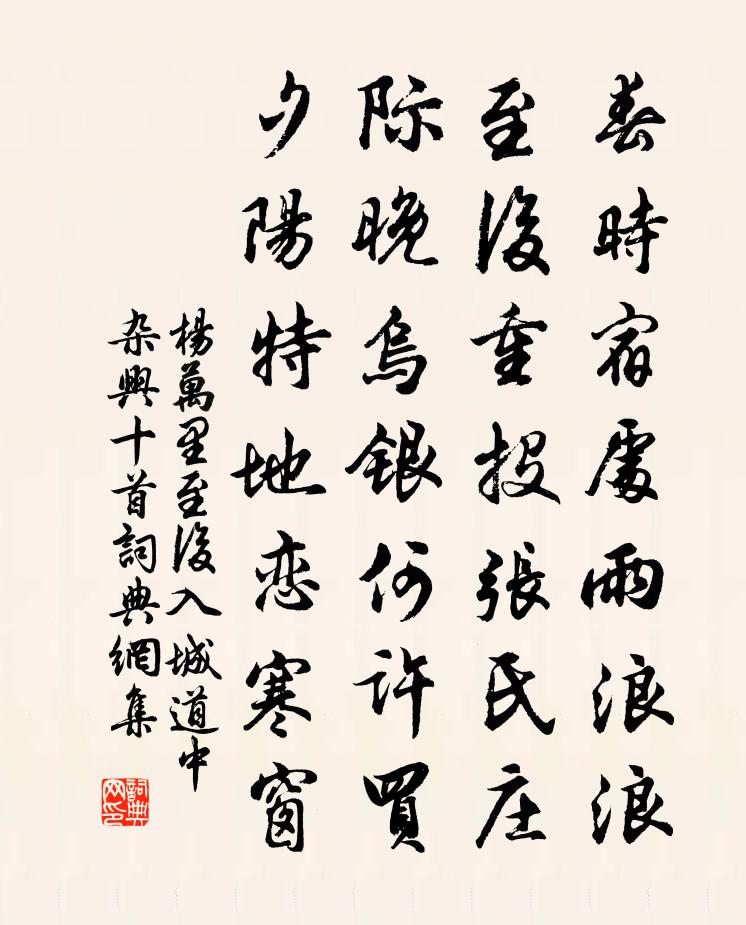 春時宿處雨浪浪
至後重投張氏庄
际晚烏銀何許買
夕陽特地恋寒窗
楊萬里至後入城道中
杂興十首詞典網集
詞典网印